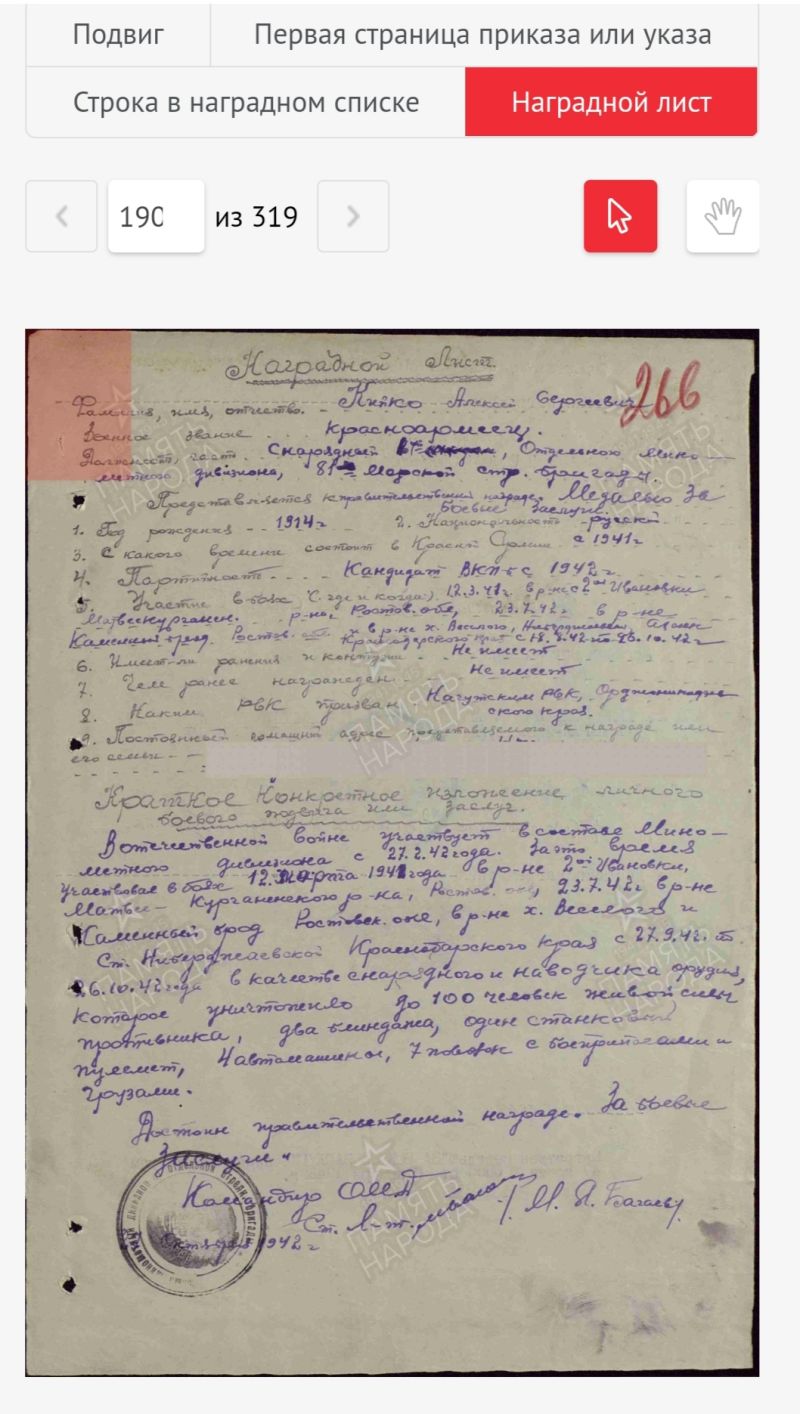 Подвиг
Первая страница приказа или указа
Строка в наградном списке
Наградной лист
190 из 319
Наградной Лист.
266
Фамилия, имя, отчество. - Алексей Сергеевич
Военное звание . . . Красноармеец.
Должность, часть. Снарядный, Отдельного Мино-
метного дивизиона, 81ой Морской стр. бригады.
Представляется к правительственной награде. Медалью За
боевые заслуги.
1. Год рождения - - 1914 г - - 2. Национальность русский
3. С какого времени состоит в Красной Армии с 1941 г
4. Партийность . . . . Кандидат ВКП/б с 1942 г.
5. Участие в боях (где и когда). 12.3. в р-не 2ой Ивановки
р-на, Ростов. обл, 23.7.42 г в р-не
Каменный брод. Ростов. обл. и в р-не х. Веселого,
Краснодарского края с 42 по 26.10.42 г
6. Имеет-ли ранения и контузии - - Не имеет
7. Чем ранее награжден. - Не имеет
8. Каким РВК призван. Нагутским РВК, Орджоникидзев-
ского края.
9. Постоянный домашний адрес представляемого к награде или
его семьи - -
Краткое Конкретное изложение личного
боевого подвига или заслуг.
В отечественной войне участвует в составе Мино-
метного дивизиона с 27.2.42 года. За это время
участвовал в боях 12 марта года в р-не 2ой Ивановки,
Матвеи - Курганенского р-на, Ростов. обл, 23.7.42 г в р-не
Каменный брод Ростовск. обл, в р-не х. Веселого и
Ст. Краснодарского края с 27.9.42 г. по
26.10.42 года в качестве снарядного и наводчика орудия,
которое уничтожило до 100 человек живой силы
противника, два блиндажа, один станковый
пулемет, 4 автомашины, 7 повозок с боеприпасами и
грузами.
Достоин правительственной награде. За боевые
Заслуги.
Командир ОМД
Ст. Л-т.
Октября 1942 г
ПАМЯТЬ
НАРОДА